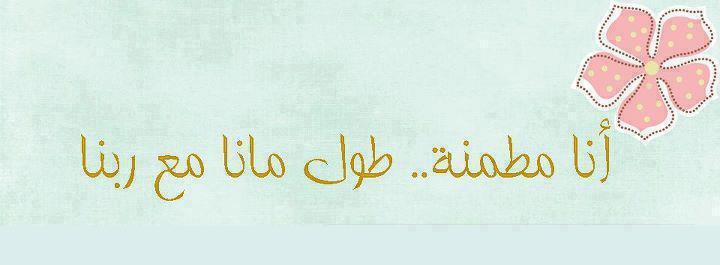 أنا مطمنة.. طول مانا مع ربنا